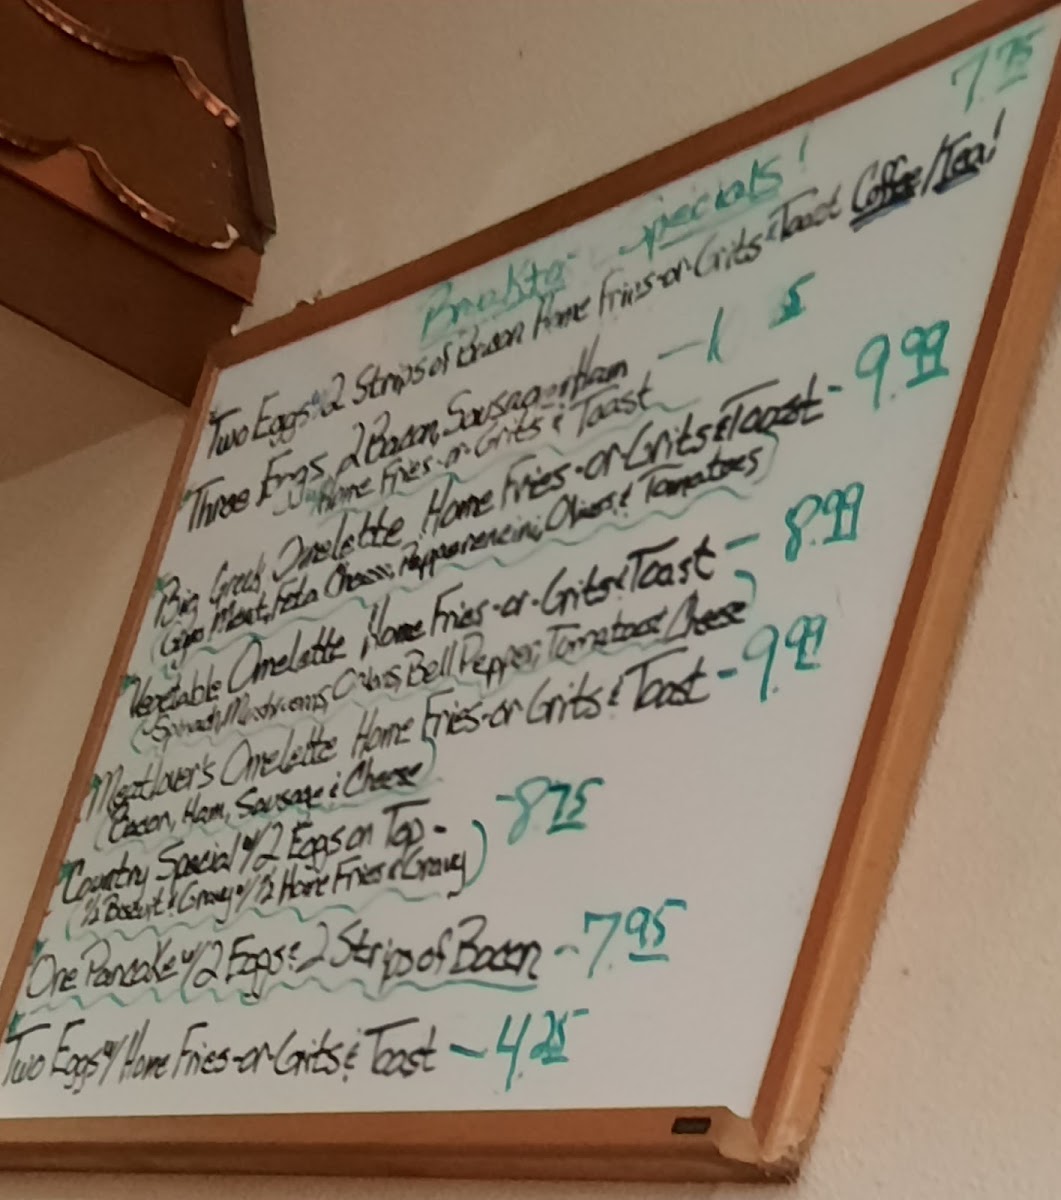 7.75
Breakfast Specials!
Two Eggs w/ 2 Strips of Bacon Home Fries-or-Grits & Toast Coffee/Tea!
Three Eggs, 2 Bacon, Sausage or Ham
Home Fries-or-Grits & Toast
Big Greek Omelette Home Fries-or-Grits & Toast - 9.99
(Gyro Meat, Feta Cheese, Pepperoncini, Olives & Tomatoes)
Vegetable Omelette Home Fries-or-Grits & Toast - 8.99
(Spinach, Mushrooms, Onions, Bell Pepper, Tomatoes & Cheese)
Meatlover's Omelette Home Fries-or Grits & Toast - 9.99
(Bacon, Ham, Sausage & Cheese)
Country Special w/ 2 Eggs on Top - 8.75
(1/2 Biscuit & Gravy w/ 1/2 Home Fries & Gravy)
One Pancake w/ 2 Eggs & 2 Strips of Bacon - 7.95
Two Eggs w/ Home Fries-or-Grits & Toast - 4.25